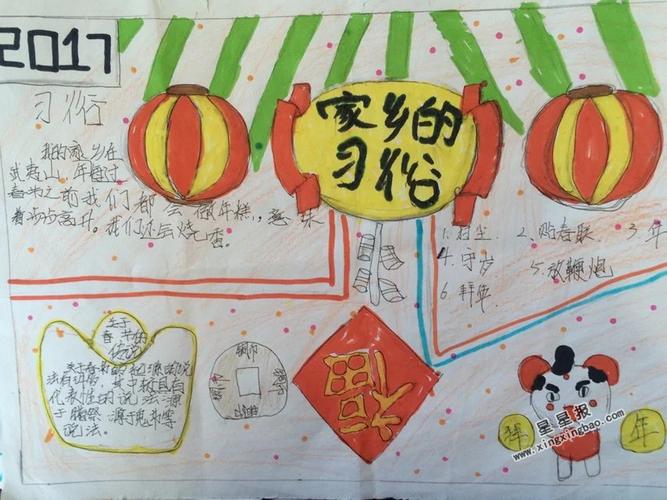 2017
家乡的
习俗
习俗
我的家乡在
武夷山，年每过
春节之前我们都会做年糕，意味
着步步高升。我们还会烧香。
1.扫尘 2.贴春联 3.年
4.守岁 5.放鞭炮
6.拜年
关于
春节的
传说
关于春节的起源的说
法有许多，其中极具有
代表性的说法源
于腊祭 源于鬼节等
说法。
福
拜
年
星星报
www.xingxingbao.com